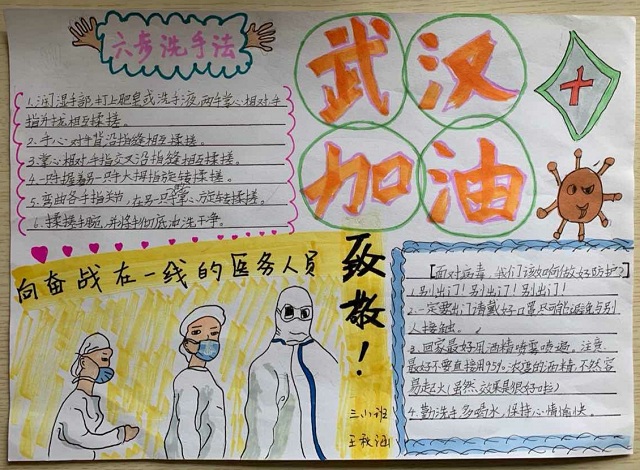 六步洗手法
武汉
加油
1.润湿手部,打上肥皂或洗手液,两手掌心相对手
指并拢相互揉搓。
2.手心对手背沿指缝相互揉搓。
3.掌心相对手指交叉沿指缝相互揉搓。
4.一只手握着另一只手大拇指旋转揉搓。
5.弯曲各手指关节,在另一只掌心旋转揉搓。
6.揉搓手腕,并将手彻底冲洗干净。
向奋战在一线的医务人员
致敬!
三小班
【面对病毒,我们该如何做好防护?】
1.别出门!别出门!别出门!
2.一定要出门请戴好口罩尽可能避免与别
人接触。
3.回家最好用酒精喷雾喷遍。注意
最好不要直接用95%浓度的酒精,不然容
易起火(虽然效果是很好啦)
4.勤洗手多喝水,保持心情愉快。